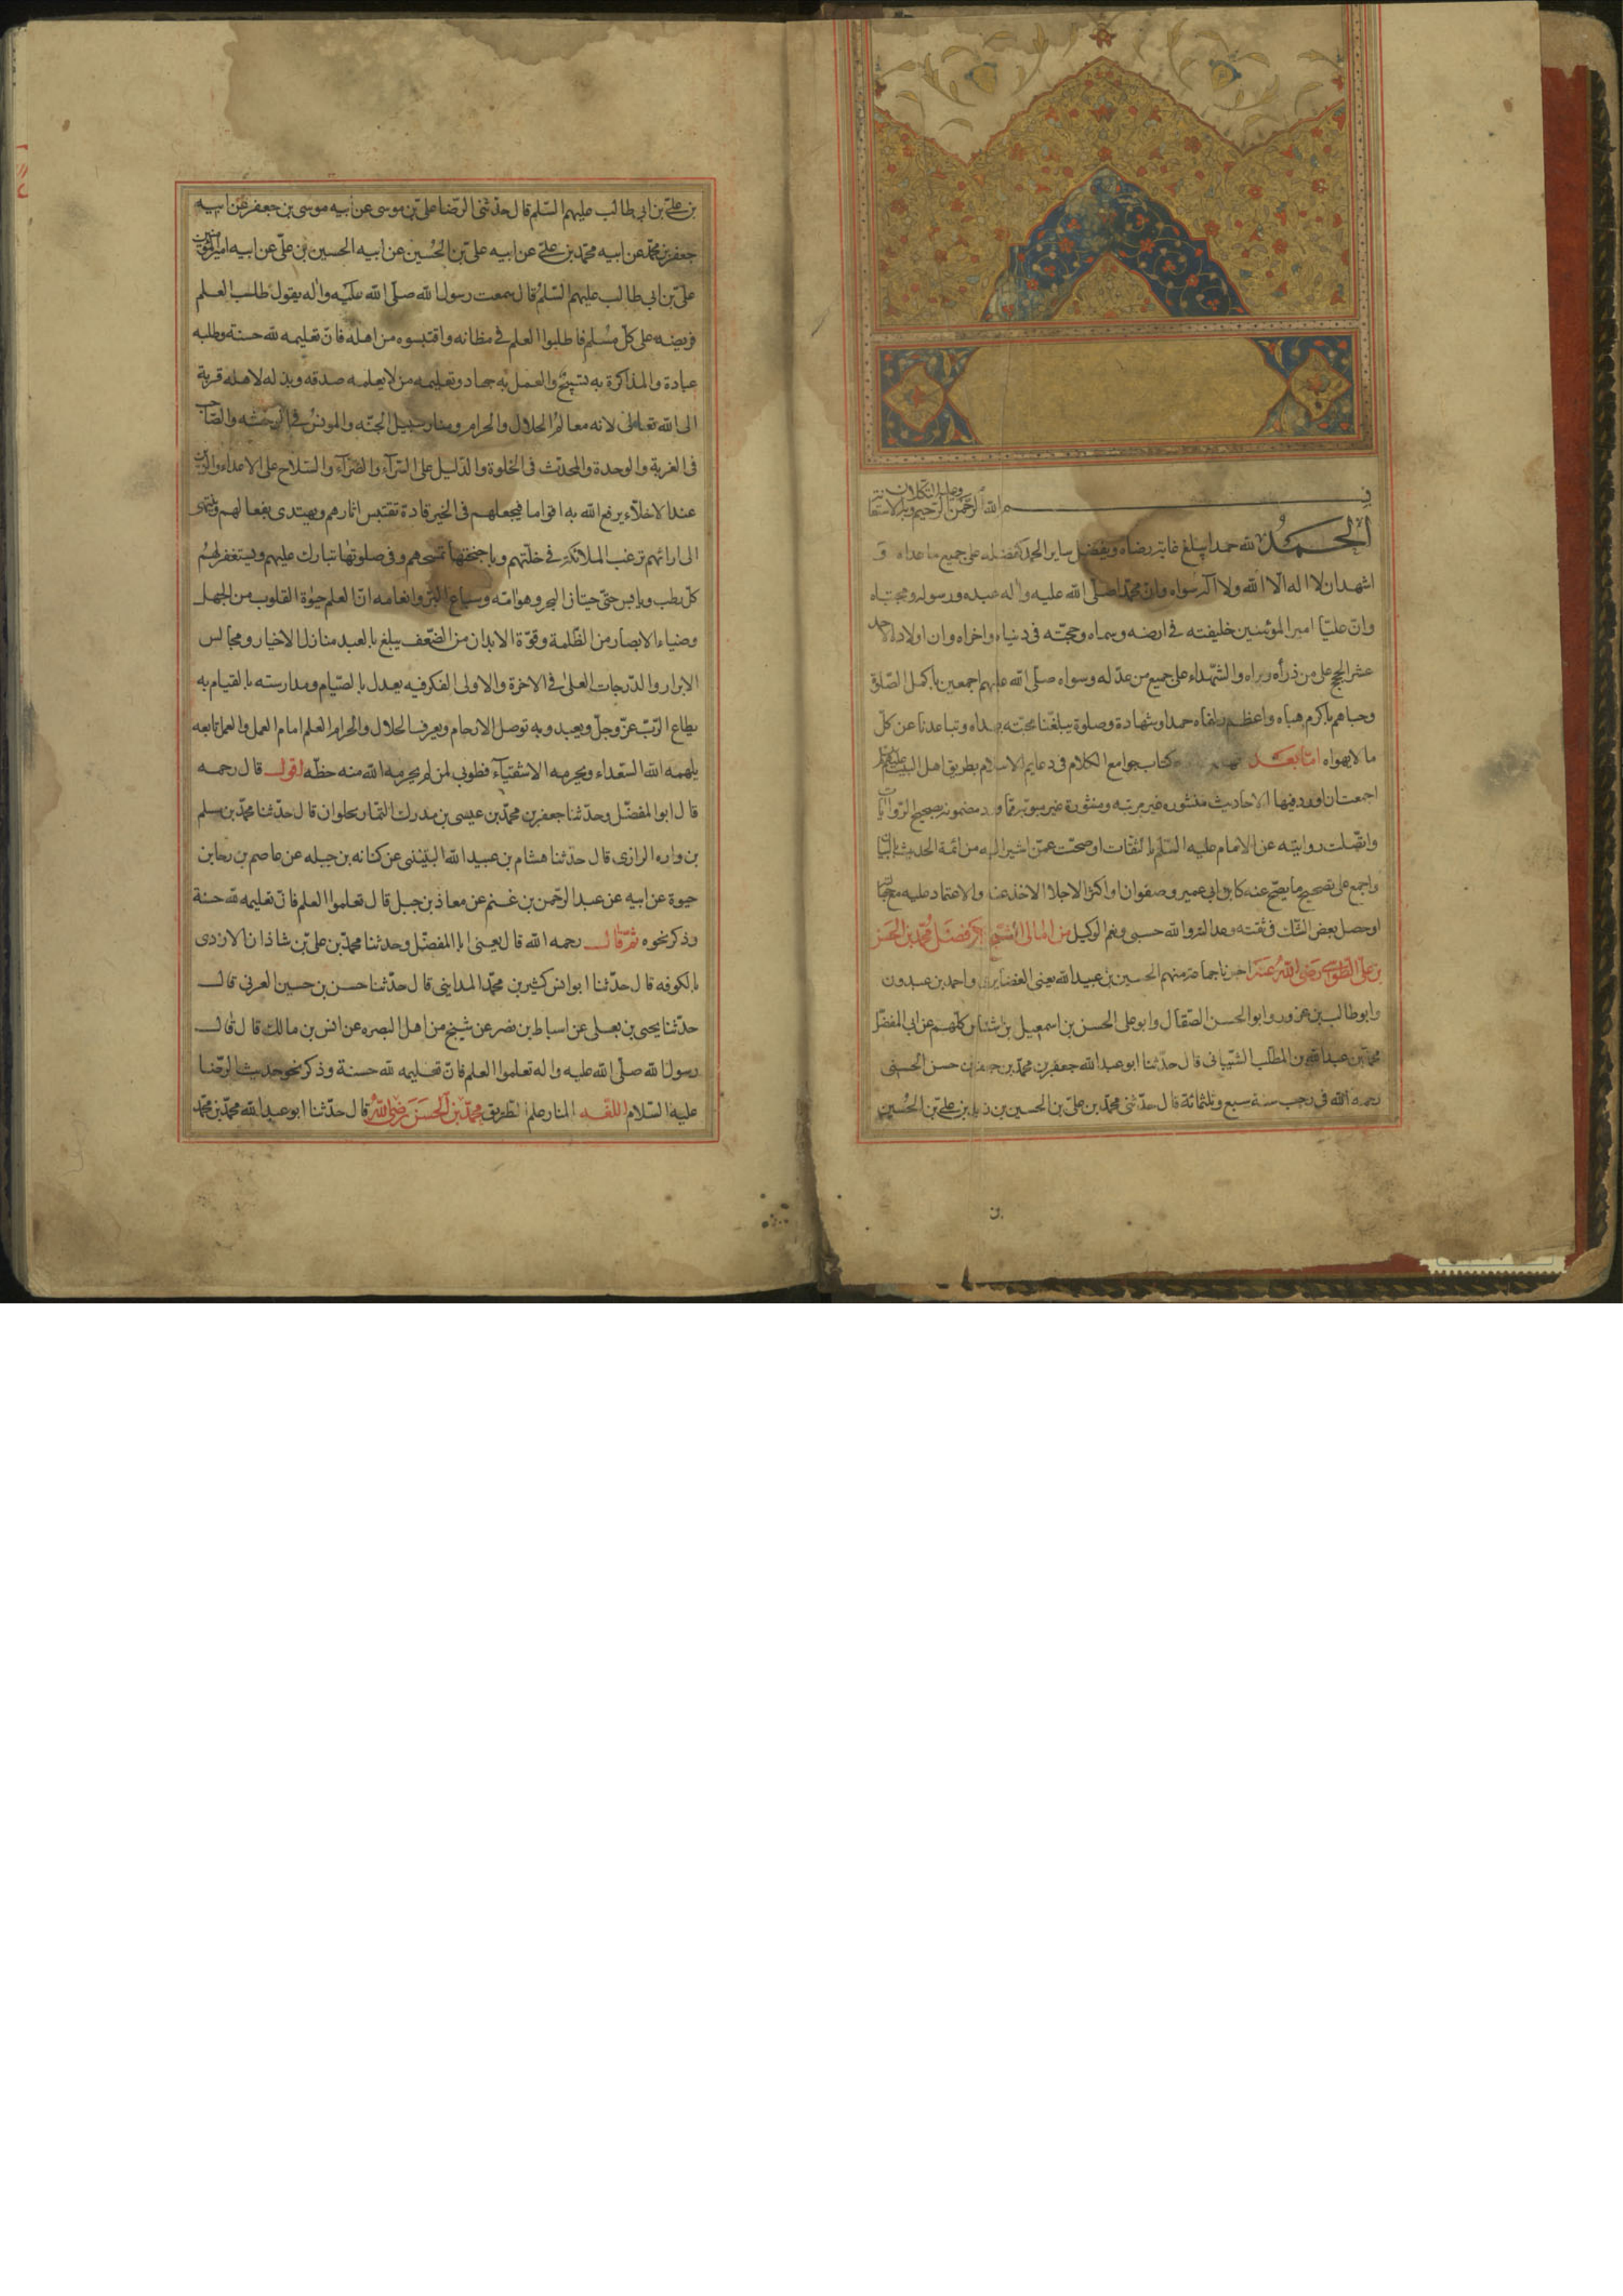 بسم الله الرحمن الرحيم وبه الاستعانة وعليه التكلان
الحمد لله حمدا يبلغ غاية رضاه ويفضل ساير الحمد كفضله على جميع ما عداه و
اشهد ان لا اله الا الله ولا اكبر سواه وان محمدا صلى الله عليه واله عبده ورسوله ومجتباه
وان عليا امير المؤمنين خليفته فى ارضه وسماه وحجته فى دنياه واخراه وان اولاده الاحد
عشر الحجج على من ذرأه وبراه والشهداء على جميع من عدله وسواه صلى الله عليهم اجمعين باكمل الصلوة
وحباهم باكرم هباه واعظم زلفاه حمدا وشهادة وصلوة يبلغنا محبته وتباعدنا عن كل
ما لا يهواه اما بعد كتاب جوامع الكلام فى دعايم الاسلام بطريق اهل البيت عليهم
اجمعت ان اورد فيها الاحاديث منثوره غير مرتبه ومنثورة غير مبوبه مما ورد مضمونه بصحيح الروايات
واتصلت روايته عن الامام عليه السلم بالثقات او صحت عمن اشير اليه من ائمة الحديث
واجمع على تصحيح ما يصح عنه كابن ابى عمير وصفوان او اكثر الاجلا الاخذ عنه والاعتماد عليه
او حصل بعض الشك فى ثقته وعدالته والله حسبى ونعم الوكيل من امالى الشيخ محمد بن الحسن
بن على الطوسى رضى الله عنه اخبرنا جماعة منهم الحسين بن عبيد الله يعنى الغضايرى واحمد بن عبدون
وابو طالب بن عزور وابو الحسن الصقال وابو على الحسن بن اسمعيل بن اشناس كلهم عن ابى المفضل
محمد بن عبد الله بن المطلب الشيبانى قال حدثنا ابو عبد الله جعفر بن محمد بن جعفر بن حسن الحسنى
رحمه الله فى رجب سنة سبع وثلثمائة قال حدثنى محمد بن على بن الحسين بن زيد بن على بن الحسين
بن على بن ابى طالب عليهم السلم قال حدثنى الرضا على بن موسى عن ابيه موسى بن جعفر عن ابيه
جعفر بن محمد عن ابيه محمد بن على عن ابيه على بن الحسين عن ابيه الحسين بن على عن ابيه امير المؤمنين
على بن ابى طالب عليهم السلم قال سمعت رسول الله صلى الله عليه واله يقول طلب العلم
فريضه على كل مسلم فاطلبوا العلم فى مظانه واقتبسوه من اهله فان تعليمه لله حسنة وطلبه
عبادة والمذاكرة به تسبيح والعمل به جهاد وتعليمه من لا يعلمه صدقه وبذله لاهله قربة
الى الله تعالى لانه معالم الحلال والحرام ومنار سبيل الجنه والمونس فى الوحشه والصاحب
فى الغربة والوحدة والمحدث فى الخلوة والدليل على السرآء والضرآء والسلاح على الاعداء والزين
عند الاخلآء يرفع الله به اقواما فيجعلهم فى الخير قادة تقتبس اثارهم ويهتدى بفعالهم وينتهى
الى ارائهم ترغب الملائكة فى خلتهم وباجنحتها تمسحهم وفى صلوتها تبارك عليهم ويستغفر لهم
كل رطب ويابس حتى حيتان البحر وهوامه وسباع البر وانعامه ان العلم حيوة القلوب من الجهل
وضياء الابصار من الظلمة وقوة الابدان من الضعف يبلغ بالعبد منازل الاخيار ومجالس
الابرار والدرجات العلى فى الاخرة والاولى الفكر فيه يعدل بالصيام ومدارسته بالقيام به
يطاع الرب عز وجل ويعبد وبه توصل الارحام ويعرف الحلال والحرام العلم امام العمل والعمل تابعه
يلهمه الله السعداء ويحرمه الاشقيآء فطوبى لمن لم يحرمه الله منه حظه اقول قال رحمه
قال ابو المفضل وحدثنا جعفر بن محمد بن عيسى بن مدرك التمار بحلوان قال حدثنا محمد بن مسلم
بن واره الرازى قال حدثنا هشام بن عبيد الله عن كنانه بن جبله عن عاصم بن رجا بن
حيوة عن ابيه عن عبد الرحمن بن غنم عن معاذ بن جبل قال تعلموا العلم فان تعليمه لله حسنة
وذكر نحوه ثم قال رحمه الله قال يعنى ابا المفضل وحدثنا محمد بن على بن شاذان الازدى
بالكوفه قال حدثنا ابو انس كثير بن محمد المداينى قال حدثنا حسن بن حسين العرنى قال
حدثنا يحيى بن يعلى عن اسباط بن نضر عن شيخ من اهل البصره عن انس بن مالك قال قال
رسول الله صلى الله عليه واله تعلموا العلم فان تعليمه لله حسنة وذكر نحو حديث الرضا
عليه السلام اللقه المنار علم الطريق محمد بن الحسن رضى الله قال حدثنا ابو عبد الله محمد بن محمد